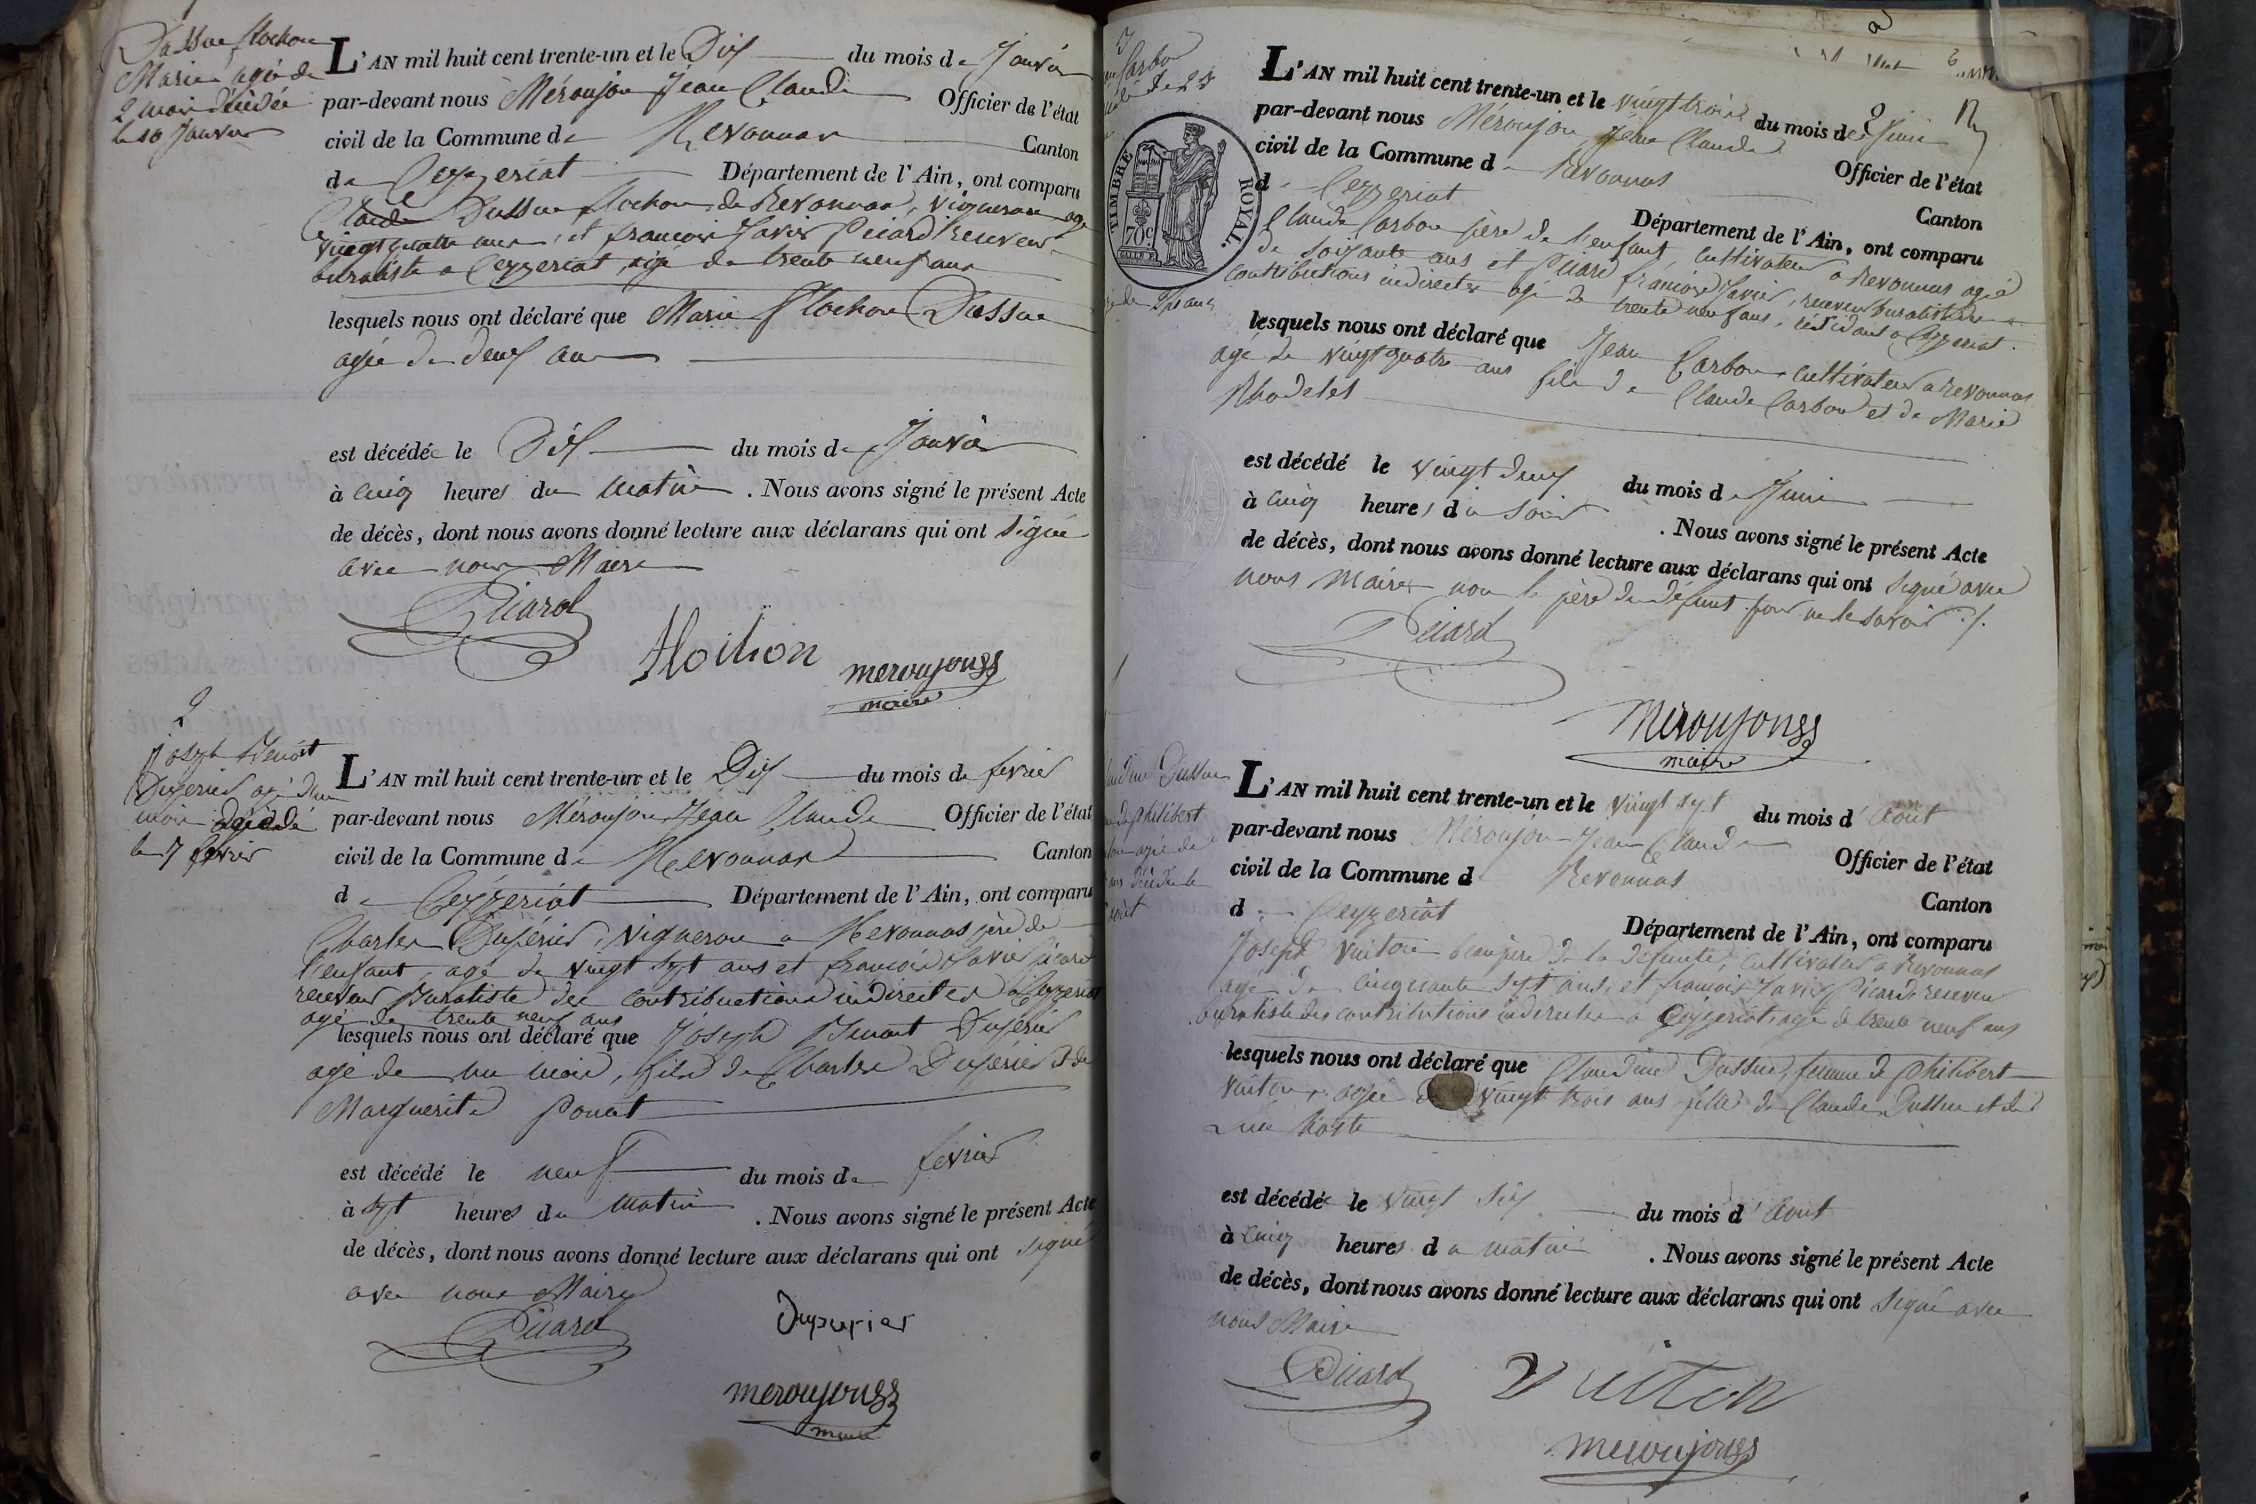 Marie agée de
2 mois décédée
le 10 Janvier
L'AN mil huit cent trente-un et le Dix du mois de Janvier
par-devant nous Méroujon Jean Claude Officier de l'état
civil de la Commune de Revonnas Canton
de Ceyzeriat Département de l'Ain, ont comparu
Claude Dussue de Revonnas, Vigneron agé
vingt quatre ans, et françois Xavier Picard Receveur
buraliste a Ceyzeriat agé de trente neuf ans
lesquels nous ont déclaré que Marie Dussue
agée de deux ans
est décédée le Dix du mois de Janvier
à Cinq heures du matin . Nous avons signé le présent Acte
de décès, dont nous avons donné lecture aux déclarans qui ont signé
avec nous Maire
Picard
meroujonss
maire
2
joseph Benoit
Duperier agé d'un
mois décédé
le 7 fevrier
L'AN mil huit cent trente-un et le Dix du mois de fevrier
par-devant nous Méroujon Jean Claude Officier de l'état
civil de la Commune de Revonnas Canton
de Ceyzeriat Département de l'Ain, ont comparu
Charles Dupérier, Vigneron a Revonnas père de
l'enfant, agé de vingt sept ans et francois Xavier Picard
receveur Buraliste des contributions indirectes a Ceyzeriat
agé de trente neuf ans
lesquels nous ont déclaré que Joseph Benoit Dupérier
agé de un mois, fils de Charles Dupérier & de
Marguerite Ponat
est décédé le neuf du mois de fevrier
à sept heures du matin . Nous avons signé le présent Acte
de décès, dont nous avons donné lecture aux déclarans qui ont signé
avec nous Maire
Picard
Dupurier
meroujonss
maire
TIMBRE ROYAL.
70c
L'AN mil huit cent trente-un et le vingt trois du mois de Juin
par-devant nous Méroujon Jean Claude Officier de l'état
civil de la Commune de Revonnas Canton
de Ceyzeriat Département de l'Ain, ont comparu
Claude Carbon père de l'enfant, Cultivateur a Revonnas agé
de soixante ans et Picard francois Xavier, receveur buraliste des
contributions indirectes agé de trente neuf ans, résidant a Ceyzeriat.
lesquels nous ont déclaré que Jean Carbon Cultivateur a Revonnas
agé de vingt quatre ans fils de Claude Carbon et de Marie
Rhodelet
est décédé le vingt deux du mois de Juin
à Cinq heures du soir . Nous avons signé le présent Acte
de décès, dont nous avons donné lecture aux déclarans qui ont signé avec
nous Maire non le père du défunt pour ne le savoir ./.
Picard
Meroujonss
maire
L'AN mil huit cent trente-un et le vingt sept du mois d'Aout
par-devant nous Méroujon Jean Claude Officier de l'état
civil de la Commune de Revonnas Canton
de Ceyzeriat Département de l'Ain, ont comparu
Joseph Vuiton beaupère de la défunte, Cultivateur a Revonnas
agé de Cinquante sept ans, et francois Xavier Picard receveur
buraliste des contributions indirectes a Ceyzeriat, agé de trente neuf ans
lesquels nous ont déclaré que Claudine Dussue, femme de philibert
Vuiton, agée de vingt trois ans fille de Claude Dussue et de
est décédée le vingt six du mois d'Aout
à Cinq heures du matin . Nous avons signé le présent Acte
de décès, dont nous avons donné lecture aux déclarans qui ont signé avec
nous Maire
Picard
Vuiton
meroujonss